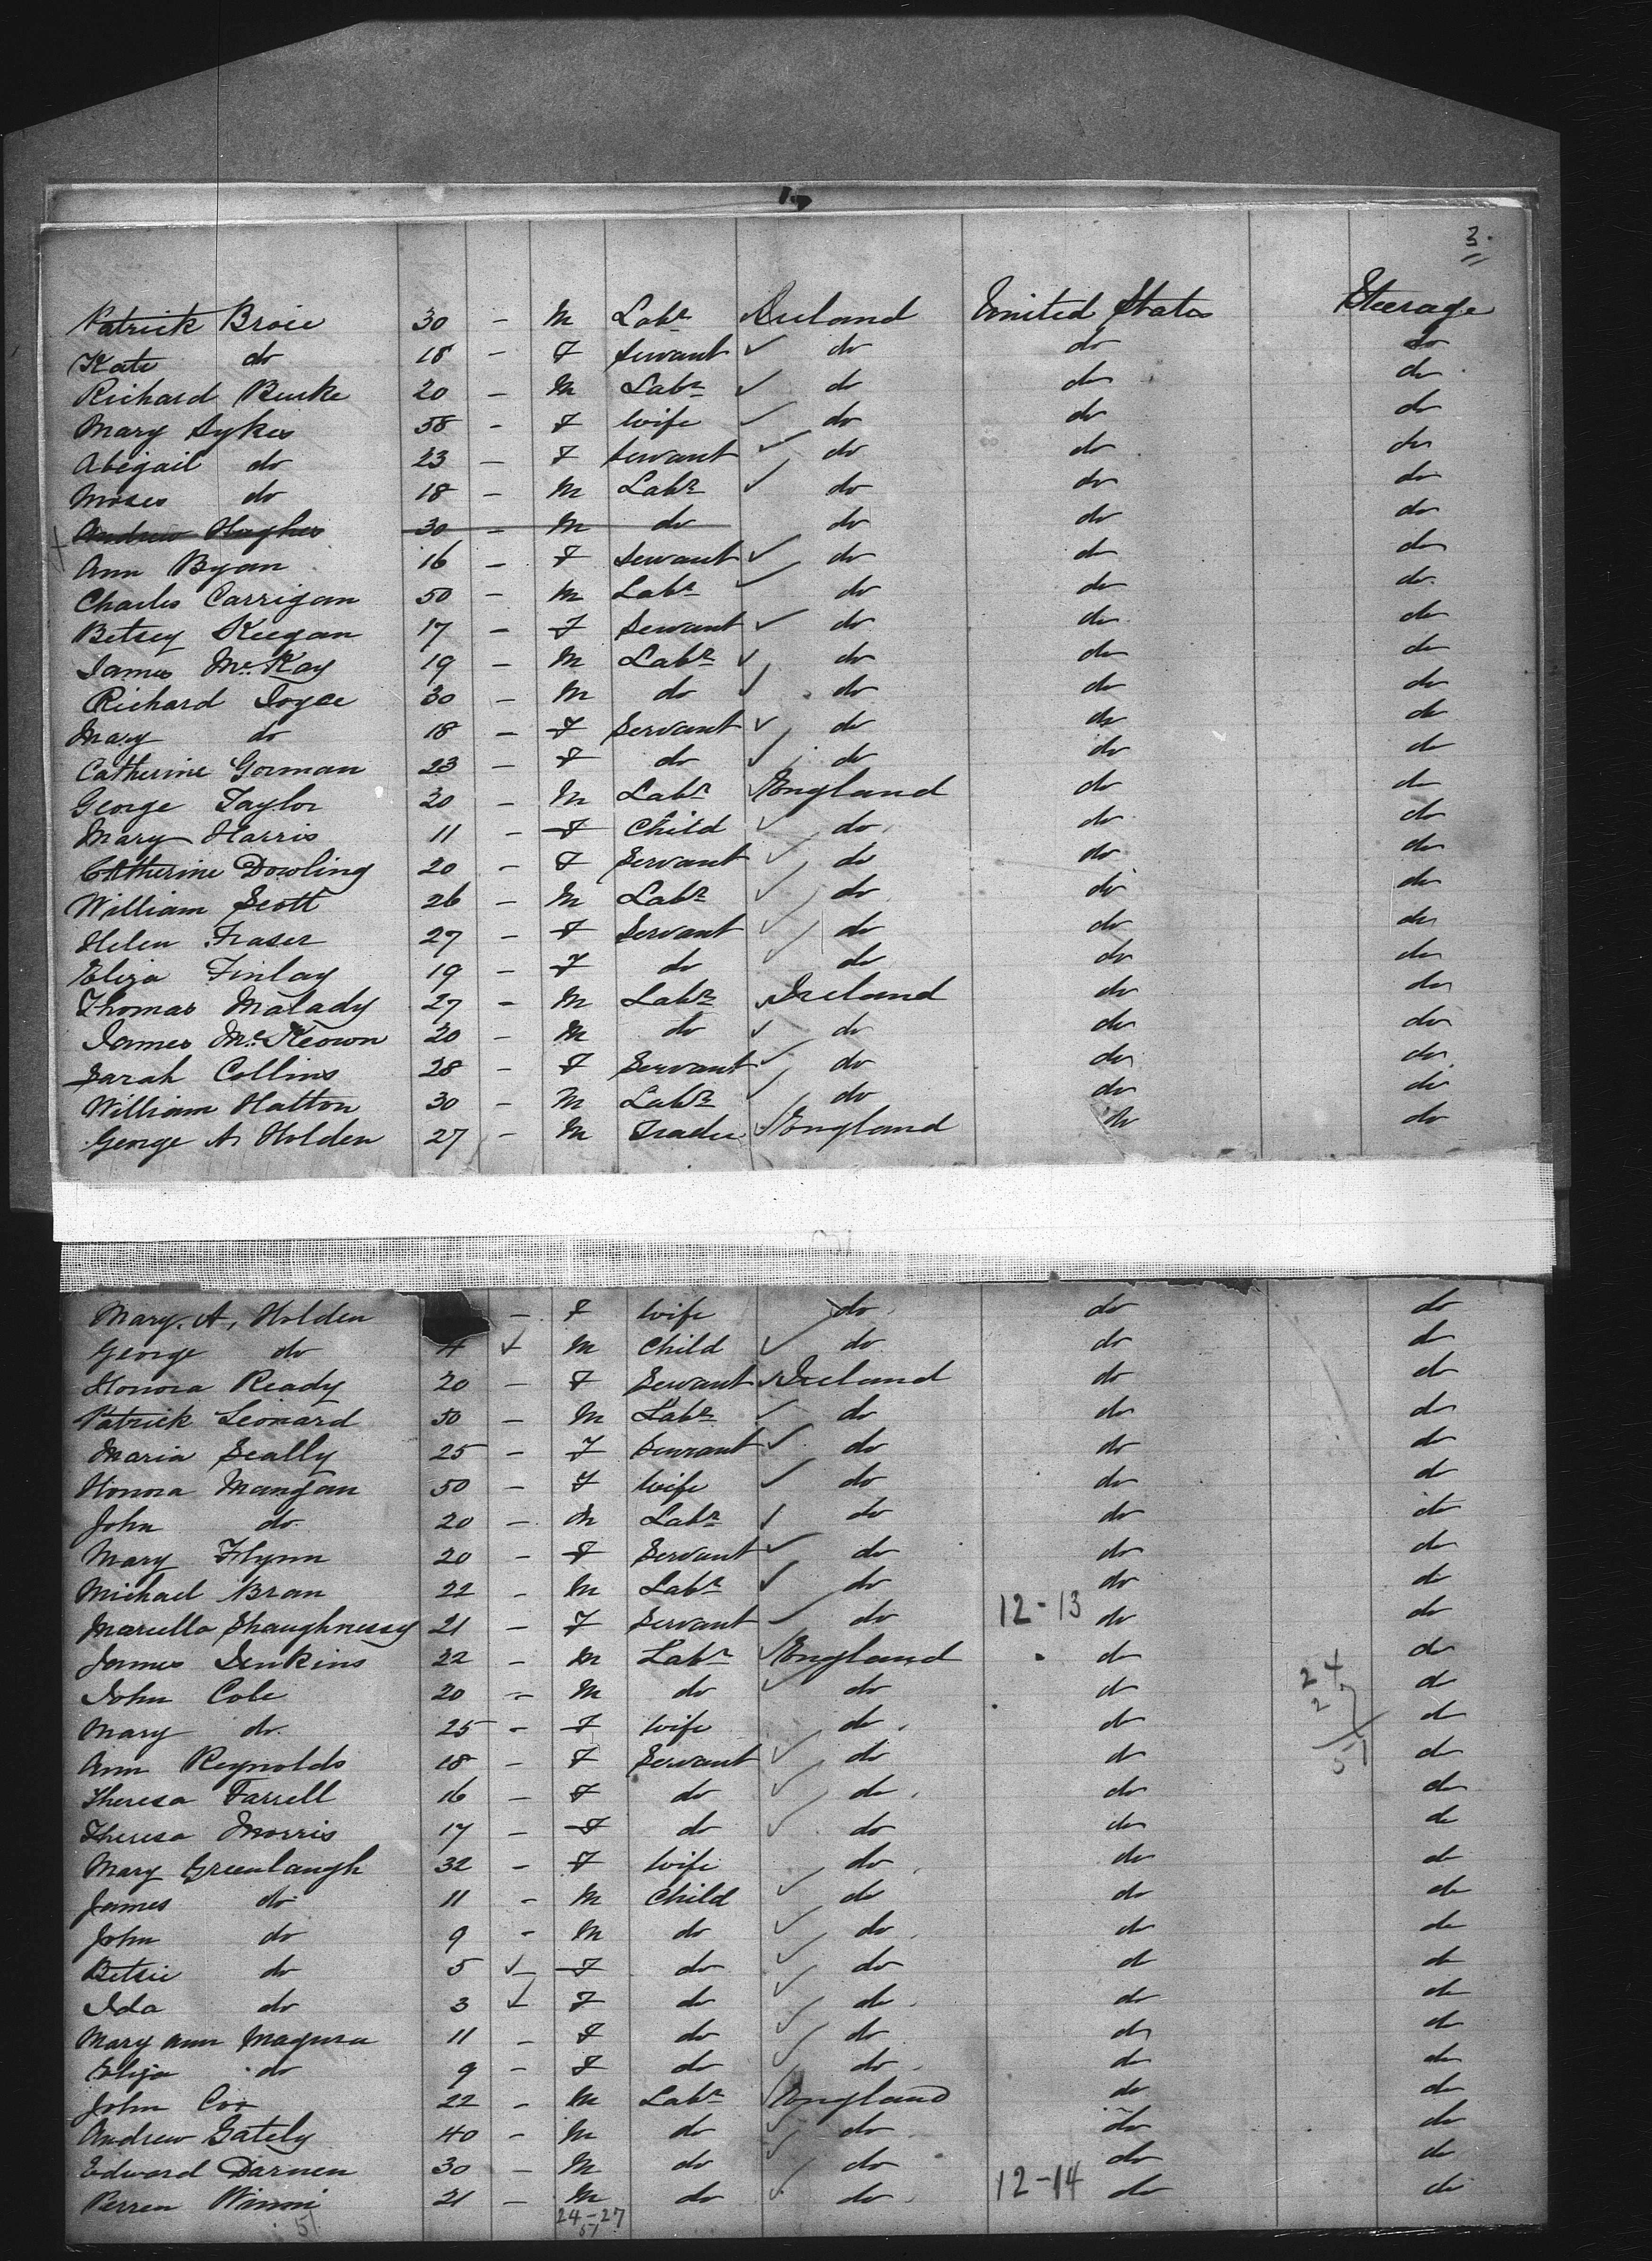 3.
Patrick Broie 30 - M Labr Ireland United States Steerage
Kate do 18 - F Servant ✓ do do do
Richard Burke 20 - M Labr ✓ do do do
Mary Sykes 38 - F Wife ✓ do do do
Abigail do 23 - F Servant ✓ do do do
Moses do 18 - M Labr ✓ do do do
Andrew Hughes 30 - M do do do do
Ann Byan 16 - F Servant ✓ do do do
Charles Carrigan 50 - M Labr ✓ do do do
Betsey Keegan 17 - F Servant ✓ do do do
James McKay 19 - M Labr ✓ do do do
Richard Joyce 30 - M do ✓ do do do
Mary do 18 - F Servant ✓ do do do
Catherine Gorman 23 - F do ✓ do do do
George Taylor 20 - M Labr ✓ England do do
Mary Harris 11 - F Child ✓ do do do
Catherine Dowling 20 - F Servant ✓ do do do
William Scott 26 - M Labr ✓ do do do
Helen Fraser 27 - F Servant ✓ do do do
Eliza Finlay 19 - F do ✓ do do do
Thomas Malady 27 - M Labr ✓ Ireland do do
James McKeown 20 - M do ✓ do do do
Sarah Collins 28 - F Servant ✓ do do do
William Hatton 30 - M Labr ✓ do do do
George A. Holden 27 - M Trader ✓ England do do
Mary. A, Holden - F Wife do do do
George do 4 ✓ M Child ✓ do do do
Honora Ready 20 - F Servant ✓ Ireland do do
Patrick Leonard 50 - M Labr ✓ do do do
Maria Scally 25 - F Servant ✓ do do do
Honora Mangan 50 - F Wife ✓ do do do
John do 20 - M Labr ✓ do do do
Mary Flynn 20 - F Servant ✓ do do do
Michael Bran 22 - M Labr ✓ do do do
Marcella Shaughnessy 21 - F Servant ✓ do 12-13 do do
James Jenkins 22 - M Labr ✓ England do do
John Cole 20 - M do ✓ do do 24 do
Mary do 25 - F Wife do do 27 do
Ann Reynolds 18 - F Servant ✓ do do 51 do
Theresa Farrell 16 - F do ✓ do do do
Theresa Morris 17 - F do ✓ do do do
Mary Greenlaugh 32 - F Wife do do do
James do 11 - M Child ✓ do do do
John do 9 - M do ✓ do do do
Betsie do 5 ✓ F do ✓ do do do
Ida do 3 ✓ F do ✓ do do do
Mary Ann 11 - F do ✓ do do do
Eliza do 9 - F do ✓ do do do
John Cox 22 - M Labr ✓ England do do
Andrew Gately 40 - M do ✓ do do do
Edward Darnen 30 - M do ✓ do do do
21 - M do ✓ do 12-14 do do
51 24-27
51